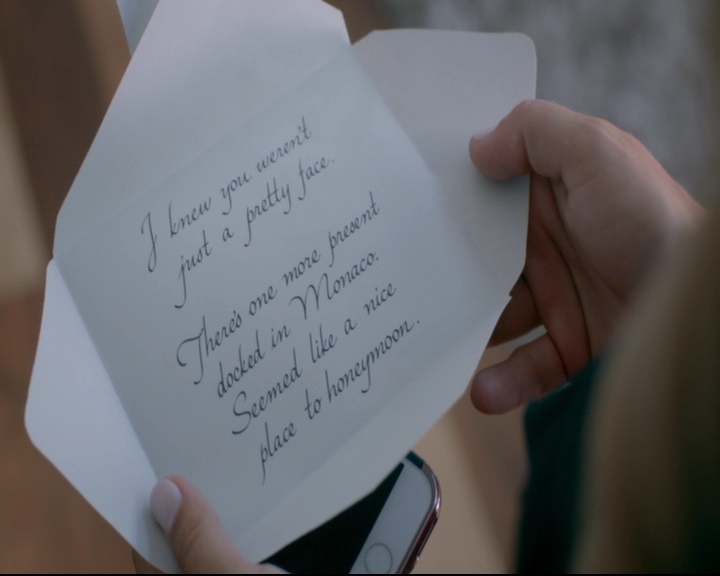 I knew you weren't
just a pretty face.
There's one more present
docked in Monaco.
Seemed like a nice
place to honeymoon.